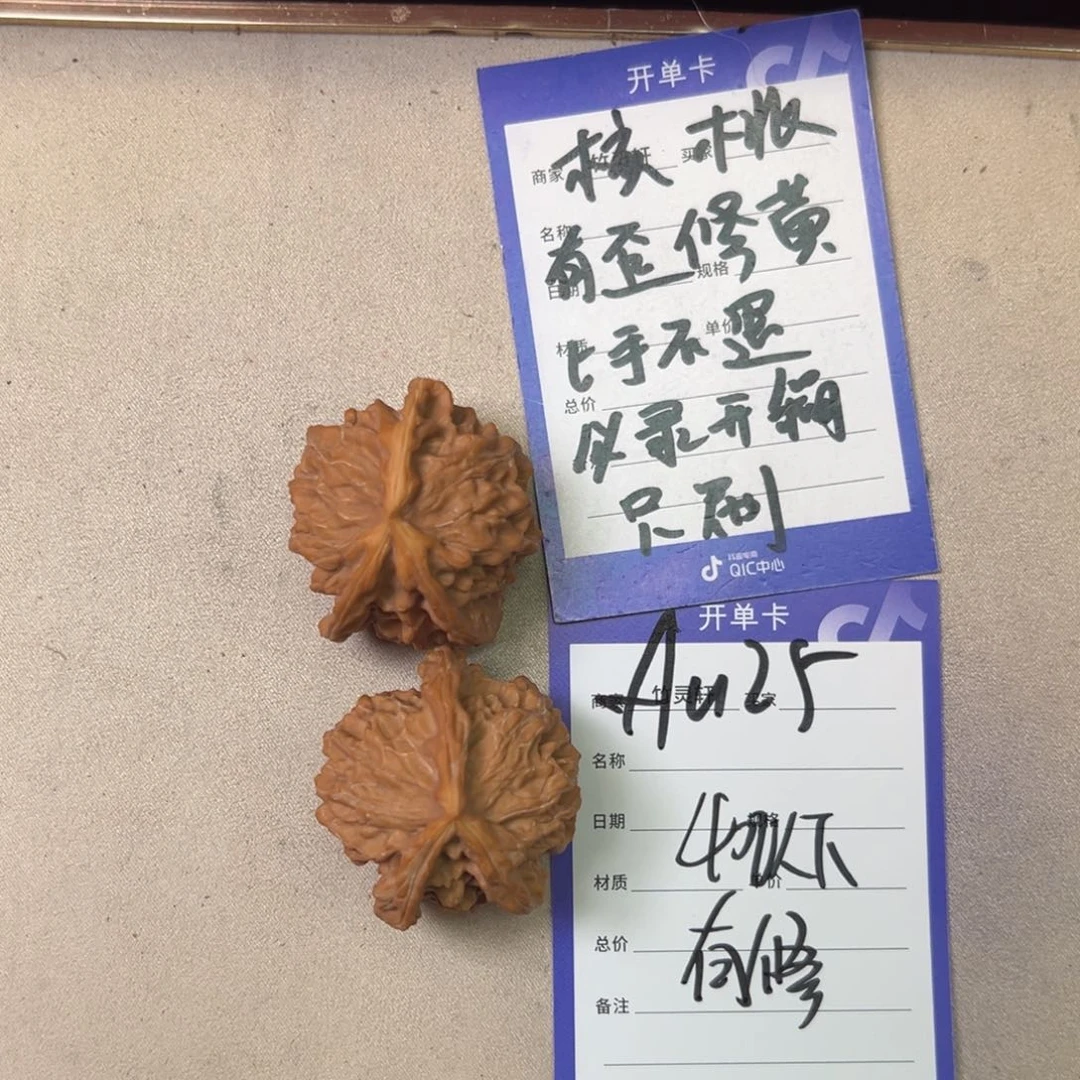 开单卡
核桃
商家 竹灵轩 买家
名称
有歪修黄
日期 规格
上手不退
材质 单价
总价
必录开箱
只刷
抖音电商
QIC中心
开单卡
Au25
商家 竹灵轩 买家
名称
日期 规格
40以下
材质 单价
总价
有修
备注